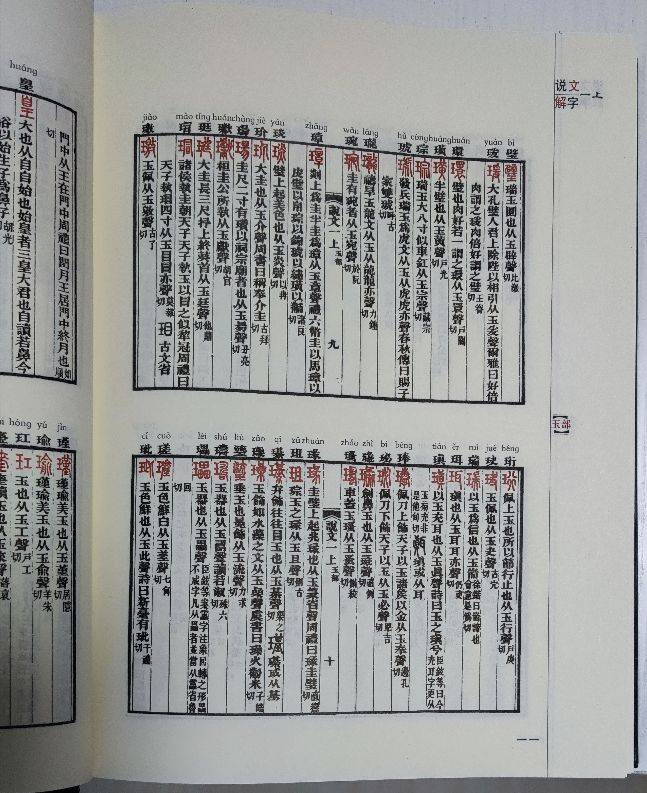 说文解字 一上
【玉部】
bì
璧 瑞玉圜也从玉辟聲比激切
yuàn
瑗 大孔璧人君上除陛以相引从玉爰聲爾雅曰好倍
肉謂之瑗肉倍好謂之璧王眷切
huán
環 璧也肉好若一謂之環从玉睘聲戶關切
huáng
璜 半璧也从玉黃聲戶光切
cóng
琮 瑞玉大八寸似車釭从玉宗聲藏宗切
hǔ
琥 發兵瑞玉爲虎文从玉从虎虎亦聲春秋傳曰賜子
家雙琥呼古切
lóng
瓏 禱旱玉龍文从玉从龍龍亦聲力鍾切
wǎn
琬 圭有琬者从玉宛聲於阮切
說文一上 玉部 九
zhāng
璋 剡上爲圭半圭爲璋从玉章聲禮六幣圭以馬璋以
皮璧以帛琮以錦琥以繡璜以黼諸良切
yǎn
琰 璧上起美色也从玉炎聲以冉切
jiè
玠 大圭也从玉介聲周書曰稱奉介圭古拜切
chàng
瑒 圭尺二寸有瓚以祠宗廟者也从玉昜聲丑亮切
huán
瓛 桓圭公所執从玉獻聲胡官切
tǐng
珽 大圭長三尺抒上終葵首从玉廷聲他鼎切
mào
瑁 諸侯執圭朝天子天子執玉以冒之似犂冠周禮曰
天子執瑁四寸从玉冒冒亦聲莫報切 珇 古文省
jiǎo
璬 玉佩从玉敫聲古了切
héng
珩 佩上玉也所以節行止也从玉行聲戶庚切
jué
玦 玉佩也从玉夬聲古穴切
ruì
瑞 以玉爲信也从玉耑徐鍇曰耑諦也會意是僞切
ěr
珥 瑱也从玉耳耳亦聲仍吏切
tiàn
瑱 以玉充耳也从玉眞聲詩曰玉之瑱兮臣鉉等曰今充耳字更从
玉旁充非是他甸切 䪴 瑱或从耳
běng
琫 佩刀上飾天子以玉諸侯以金从玉奉聲邊孔切
bì
珌 佩刀下飾天子以玉从玉必聲卑吉切
zhì
璏 劒鼻玉也从玉彘聲直例切
zhǎo
瑵 車蓋玉瑵从玉蚤聲側絞切
說文一上 玉部 十
zhuàn
瑑 圭璧上起兆瑑也从玉篆省聲周禮曰瑑圭璧直戀切
zǔ
珇 琮玉之瑑从玉且聲則古切
qí
弁飾往往冒玉也从玉綦聲渠之切 璂 璂或从基
zǎo
璪 玉飾如水藻之文从玉喿聲虞書曰璪火黺米子皓切
liú
瑬 垂玉也冕飾从玉流聲力求切
shú
璹 玉器也从玉𠷎聲讀若淑殊六切
léi
瓃 玉器也从玉畾聲臣鉉等案靁字注象回轉之形畾不成字凡从畾者竝當从靁省魯
回切
cuō
瑳 玉色鮮白从玉差聲七何切
cǐ
玼 玉色鮮也从玉此聲詩曰新臺有玼千禮切
一一
門中从王在門中周禮曰閏月王居門中終月也如順
切
huáng
皇 大也从自自始也始皇者三皇大君也自讀若鼻今
俗以始生子爲鼻子胡光
jǐn
瑾 瑾瑜美玉也从玉堇聲居隱切
yú
瑜 瑾瑜美玉也从玉俞聲羊朱切
hóng
玒 玉也从玉工聲戶工切